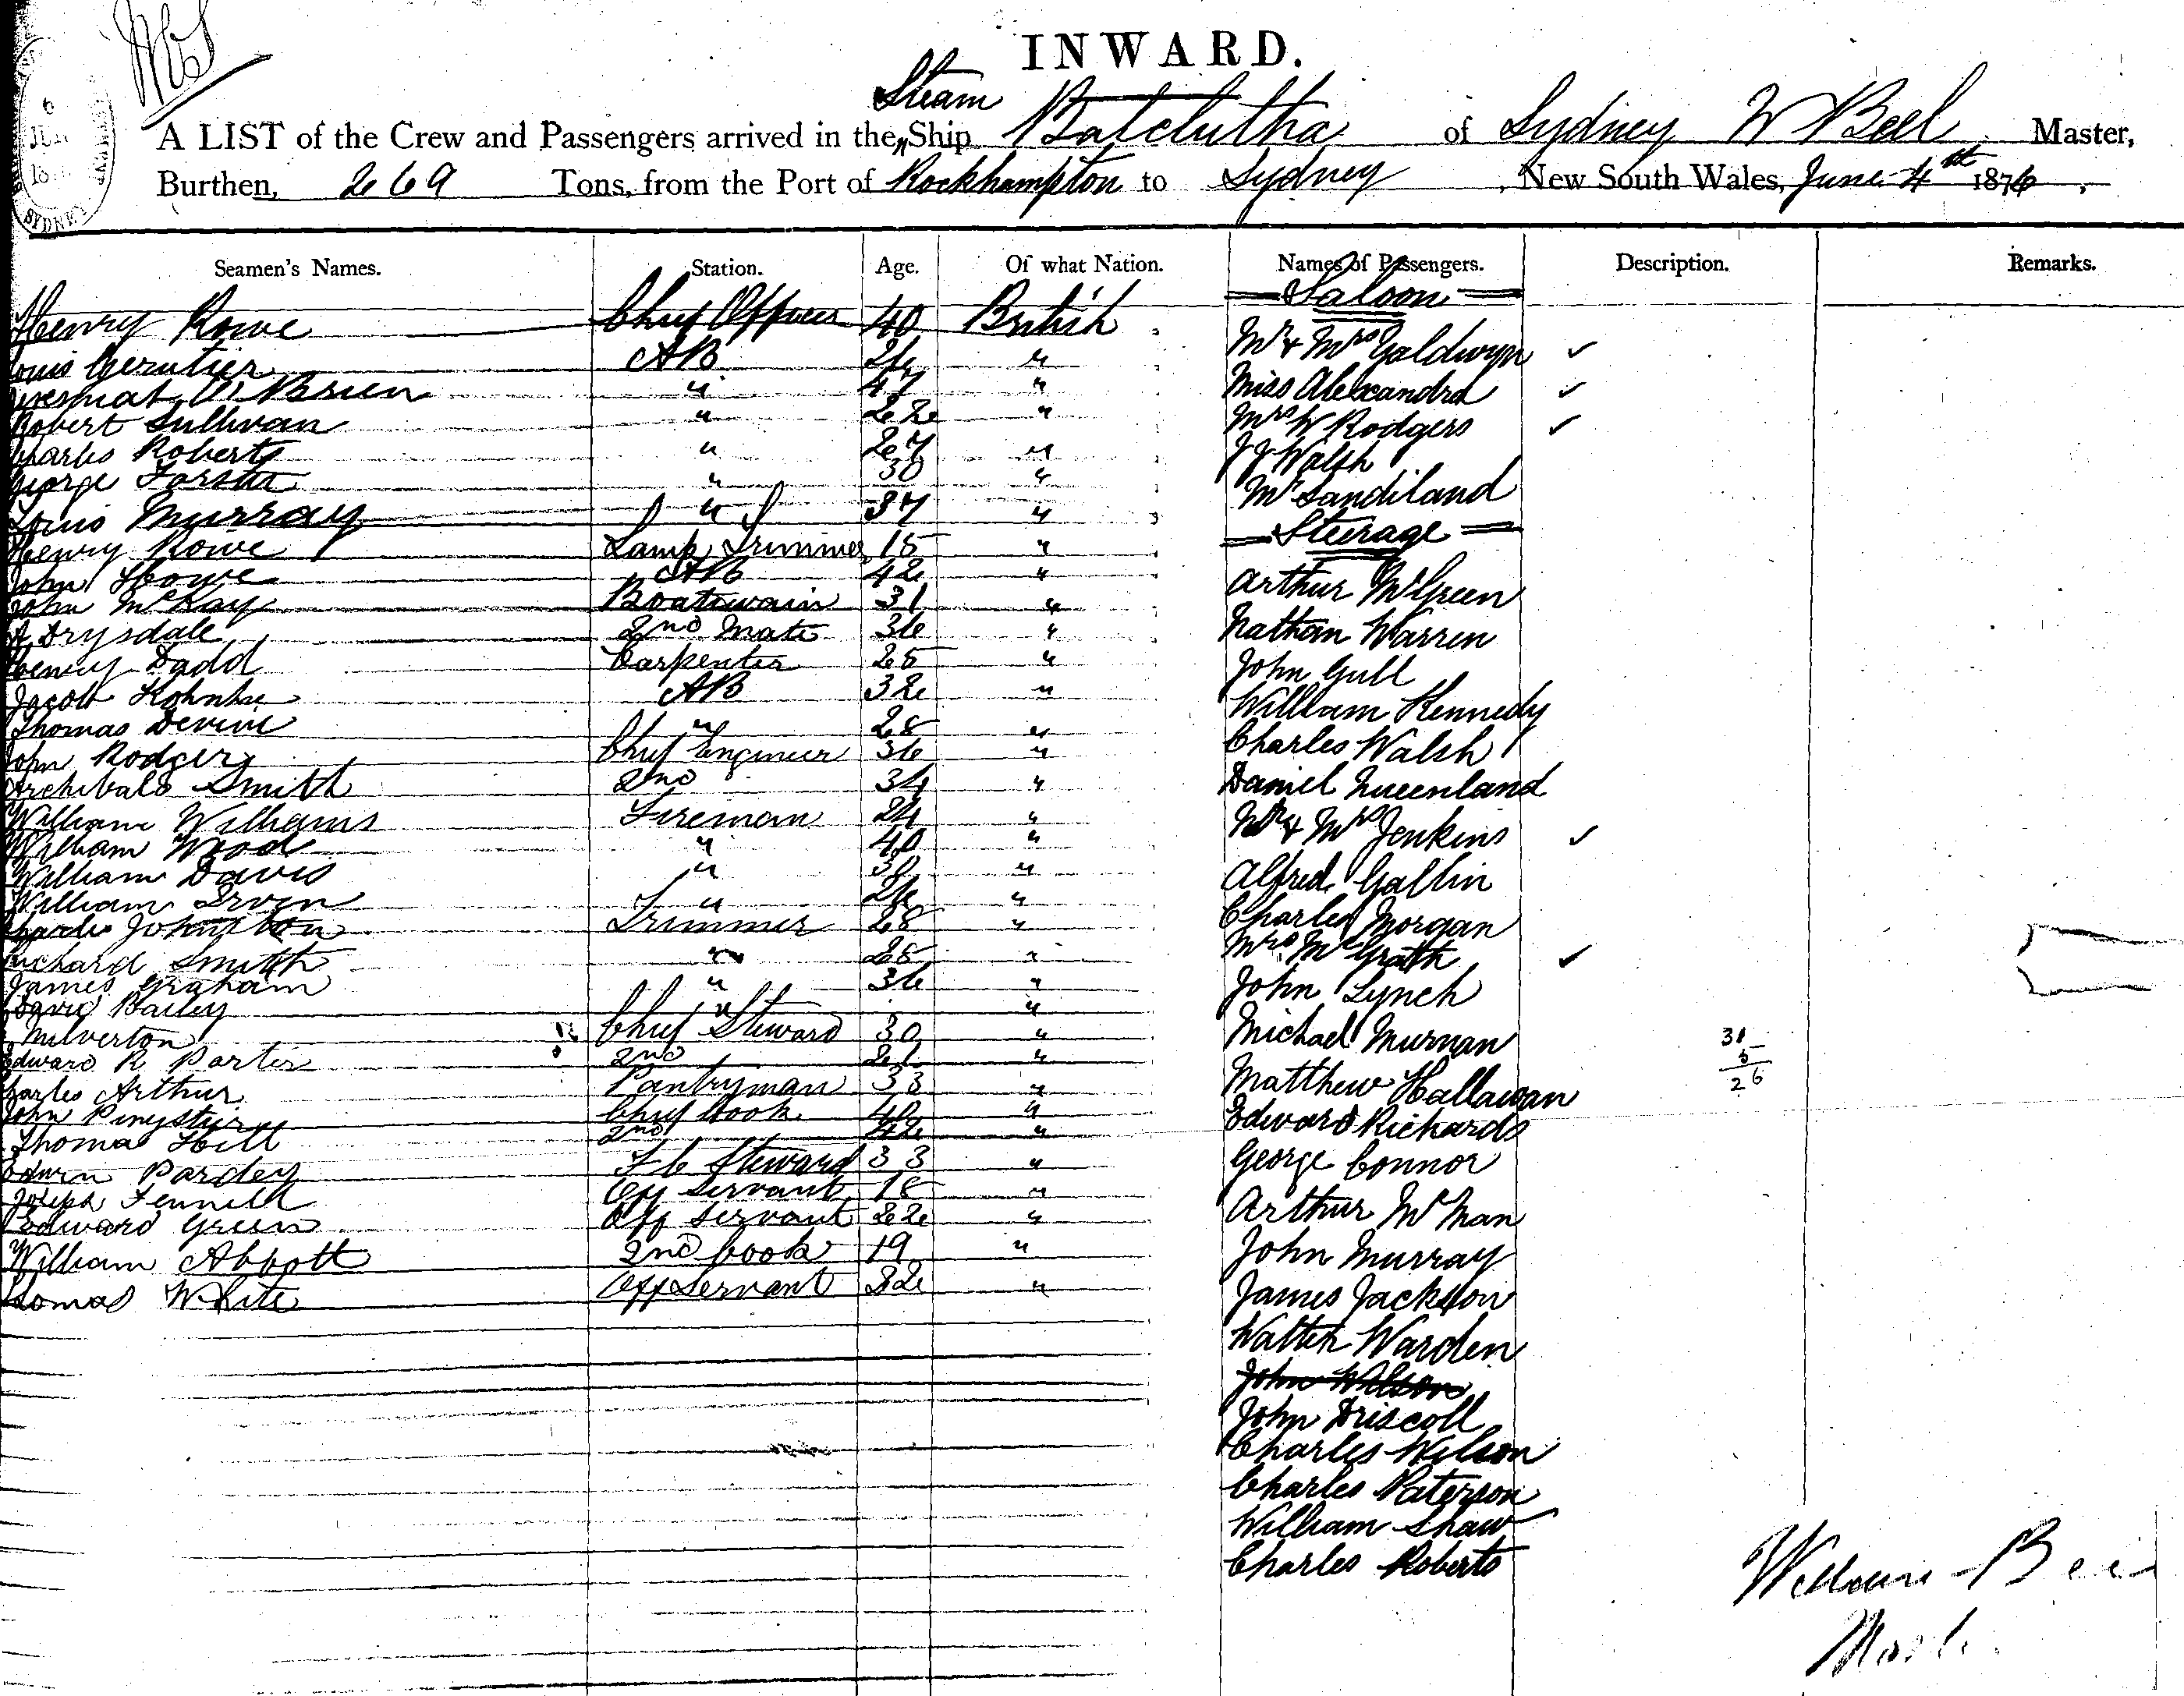 INWARD.
Steam
A LIST of the Crew and Passengers arrived in the Ship Balclutha of Sydney W Beel Master,
Burthen, 269 Tons, from the Port of Rockhampton to Sydney, New South Wales, June 4th 1876.
Seamen's Names. Station. Age. Of what Nation. Names of Passengers. Description. Remarks.
Saloon
Henry Rowe Chief Officer 40 British
Mr & Mrs Galdwyn ✓
AB 26 "
O'Brien " 47 " Miss Alexandra ✓
Robert Sullivan " 22 " Mrs W Rodgers ✓
Charles Roberts " 27 " J J Walsh
George " 30 " Mr Sandiland
Louis Murray " 37 "
Steerage
Henry Rowe Lamp Trimmer 18 "
John Howe AB 42 " Arthur McGreen
John McKay Boatswain 31 "
A Drysdale 2nd Mate 36 " Nathan Warren
Henry Dadd Carpenter 28 " John Gull
Jacob AB 32 " William Kennedy
Thomas Devine " 28 "
John Rodger Chief Engineer 36 " Charles Walsh
Archibald Smith 2nd 34 " Daniel Queenland
William Williams Fireman 24 " Mr & Mrs Jenkins ✓
William Wood " 40 "
William Davis " 30 " Alfred Gallin
William Irven " 26 "
Charles Johnston Trimmer 28 " Charles Morgan
Richard Smith " 28 " Mrs McGrath ✓
James Graham " 36 " John Lynch
David Bailey " "
Milverton Chief Steward 30 " Michael Murnan
Edward R Porter 2nd 21 "
Charles Arthur Pantryman 33 " Matthew Hallawan
John Chief Cook 40 " Edward Richards
Thomas Hill 2nd 42 "
Edwin Pardey F C Steward 33 " George Connor
Joseph Fennell Off Servant 18 "
Edward Green Off Servant 22 " Arthur McMan
William Abbott 2nd Cook 19 " John Murray
Thomas White Off Servant 32 " James Jackson
Walter Warden
John Wilson
John Driscoll
Charles Wilson
Charles Paterson
William Shaw
Charles Roberts
31
5
26
William Beel